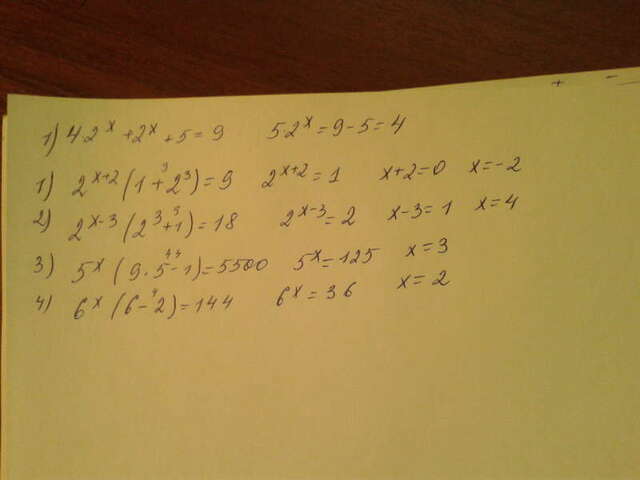 + -
1) 4·2^x + 2^x + 5 = 9 5·2^x = 9 - 5 = 4
1) 2^{x+2} (1 + 2^3) = 9 2^{x+2} = 1 x+2=0 x=-2
2) 2^{x-3} (2^3 + 1) = 18 2^{x-3} = 2 x-3=1 x=4
3) 5^x (9·5 - 1) = 5500 5^x = 125 x=3
4) 6^x (6 - 2) = 144 6^x = 36 x=2